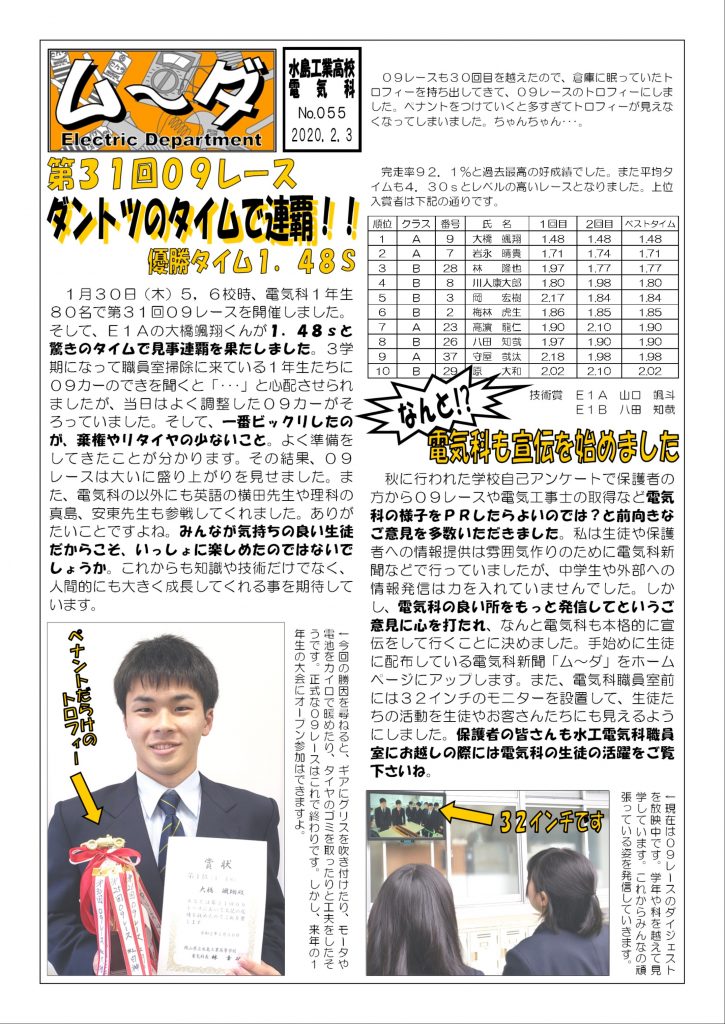 ム〜ダ
Electric Department
水島工業高校
電気科
No.055
2020.2.3
第31回09レース
ダントツのタイムで連覇！！
優勝タイム1．48S
　1月30日（木）5，6校時、電気科1年生
80名で第31回09レースを開催しました。
そして、E1Aの大橋颯翔くんが1．48sと
驚きのタイムで見事連覇を果たしました。3学
期になって職員室掃除に来ている1年生たちに
09カーのできを聞くと「・・・」と心配させられ
ましたが、当日はよく調整した09カーがそ
ろっていました。そして、一番ビックリしたの
が、棄権やリタイヤの少ないこと。よく準備を
してきたことが分かります。その結果、09
レースは大いに盛り上がりを見せました。ま
た、電気科の以外にも英語の横田先生や理科の
真島、安東先生も参戦してくれました。ありが
たいことですよね。みんなが気持ちの良い生徒
だからこそ、いっしょに楽しめたのではないで
しょうか。これからも知識や技術だけでなく、
人間的にも大きく成長してくれる事を期待して
います。
ペナントだらけの
トロフィー
賞状
大橋颯翔殿
←今回の勝因を尋ねると、ギアにグリスを吹き付けたり、モータや
電池をカイロで暖めたり、タイヤのゴミを取ったりと工夫をしたそ
うです。正式な09レースはこれで終わりです。しかし、来年の1
年生の大会にオープン参加はできますよ。
　09レースも30回目を越えたので、倉庫に眠っていたト
ロフィーを持ち出してきて、09レースのトロフィーにしま
した。ペナントをつけていくと多すぎてトロフィーが見えな
くなってしまいました。ちゃんちゃん・・・。
　完走率92．1％と過去最高の好成績でした。また平均タ
イムも4．30sとレベルの高いレースとなりました。上位
入賞者は下記の通りです。
順位 クラス 番号 氏　名 1回目 2回目 ベストタイム
1 A 9 大橋　颯翔 1.48 1.48 1.48
2 A 7 岩永　晴貴 1.71 1.74 1.71
3 B 28 林　隆也 1.97 1.77 1.77
4 B 8 川人康大郎 1.80 1.98 1.80
5 B 3 岡　宏樹 2.17 1.84 1.84
6 B 2 梅林　虎生 1.86 1.85 1.85
7 A 23 高濵　龍仁 1.90 2.10 1.90
8 B 26 八田　知哉 1.97 1.90 1.90
9 A 37 守屋　哉汰 2.18 1.98 1.98
10 B 29 原　大和 2.02 2.10 2.02
技術賞　E1A　山口　颯斗
E1B　八田　知哉
なんと!?
電気科も宣伝を始めました
　秋に行われた学校自己アンケートで保護者の
方から09レースや電気工事士の取得など電気
科の様子をPRしたらよいのでは？と前向きな
ご意見を多数いただきました。私は生徒や保護
者への情報提供は雰囲気作りのために電気科新
聞などで行っていましたが、中学生や外部への
情報発信は力を入れていませんでした。しか
し、電気科の良い所をもっと発信してというご
意見に心を打たれ、なんと電気科も本格的に宣
伝をして行くことに決めました。手始めに生徒
に配布している電気科新聞「ム〜ダ」をホーム
ページにアップします。また、電気科職員室前
には32インチのモニターを設置して、生徒た
ちの活動を生徒やお客さんたちにも見えるよう
にしました。保護者の皆さんも水工電気科職員
室にお越しの際には電気科の生徒の活躍をご覧
下さいね。
32インチです
←現在は09レースのダイジェスト
を放映中です。学年や科を越えて見
学しています。これからみんなの頑
張っている姿を発信していきます。